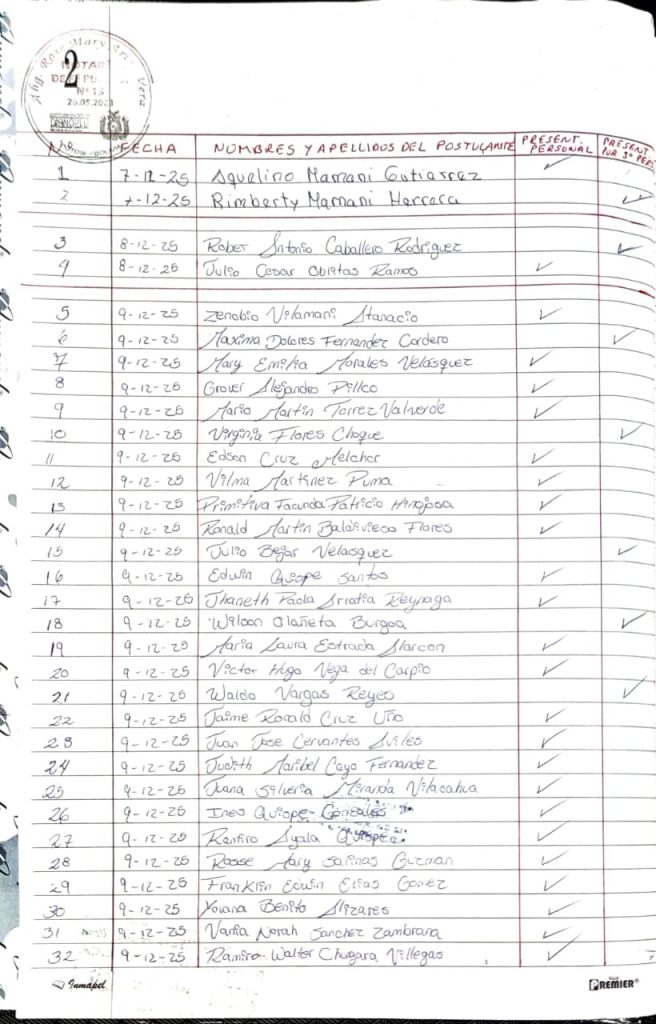 Abg. Rose Mary Vera
2
NOTAR
DE FE PU
Nº 13
26.05.2023
Nº FECHA NOMBRES Y APELLIDOS DEL POSTULANTE PRESENT. PERSONAL PRESENT. POR 3ª PERS
1 7-12-25 Aquelino Mamani Gutierrez ✓
2 7-12-25 Rimberty Mamani Herrera ✓
3 8-12-25 Rober Antonio Caballero Rodriguez ✓
4 8-12-25 Julio Cesar Obietas Ramos ✓
5 9-12-25 Zenobio Vilamani Atanacio ✓
6 9-12-25 Maxima Dolores Fernandez Cordero ✓
7 9-12-25 Mary Emilia Morales Velásquez ✓
8 9-12-25 Grover Alejandro Pillco ✓
9 9-12-25 Mario Martin Torrez Valverde ✓
10 9-12-25 Virginia Flores Choque ✓
11 9-12-25 Edson Cruz Melchor ✓
12 9-12-25 Vilma Martinez Puma ✓
13 9-12-25 Primitiva Facunda Patricio Hinojosa ✓
14 9-12-25 Ronald Martin Baldivieso Flores ✓
15 9-12-25 Julio Bejar Velasquez ✓
16 9-12-25 Edwin Quispe Santos ✓
17 9-12-25 Jhaneth Paola Arratia Reynaga ✓
18 9-12-25 Wilson Olañeta Burgoa ✓
19 9-12-25 Maria Laura Estrada Alarcon ✓
20 9-12-25 Victor Hugo Vega del Carpio ✓
21 9-12-25 Waldo Vargas Reyes ✓
22 9-12-25 Jaime Ronald Cruz Uño ✓
23 9-12-25 Juan Jose Cervantes Aviles ✓
24 9-12-25 Judith Maribel Cayo Fernandez ✓
25 9-12-25 Juana Silveria Miranda Vilacahua ✓
26 9-12-25 Ines Quispe Gonzales ✓
27 9-12-25 Ramiro Ayala Quispe ✓
28 9-12-25 Rosse Mary Salinas Guzman ✓
29 9-12-25 Franklin Edwin Elias Gomez ✓
30 9-12-25 Xovana Benito Alizares ✓
31 9-12-25 Vania Norah Sanchez Zambrana ✓
32 9-12-25 Ramiro Walter Chugara Villegas ✓
Inmapel PREMIER®